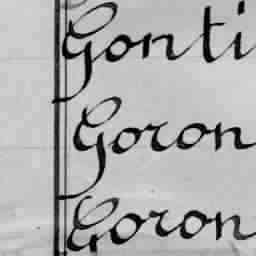 Gonti
Goron
Goron